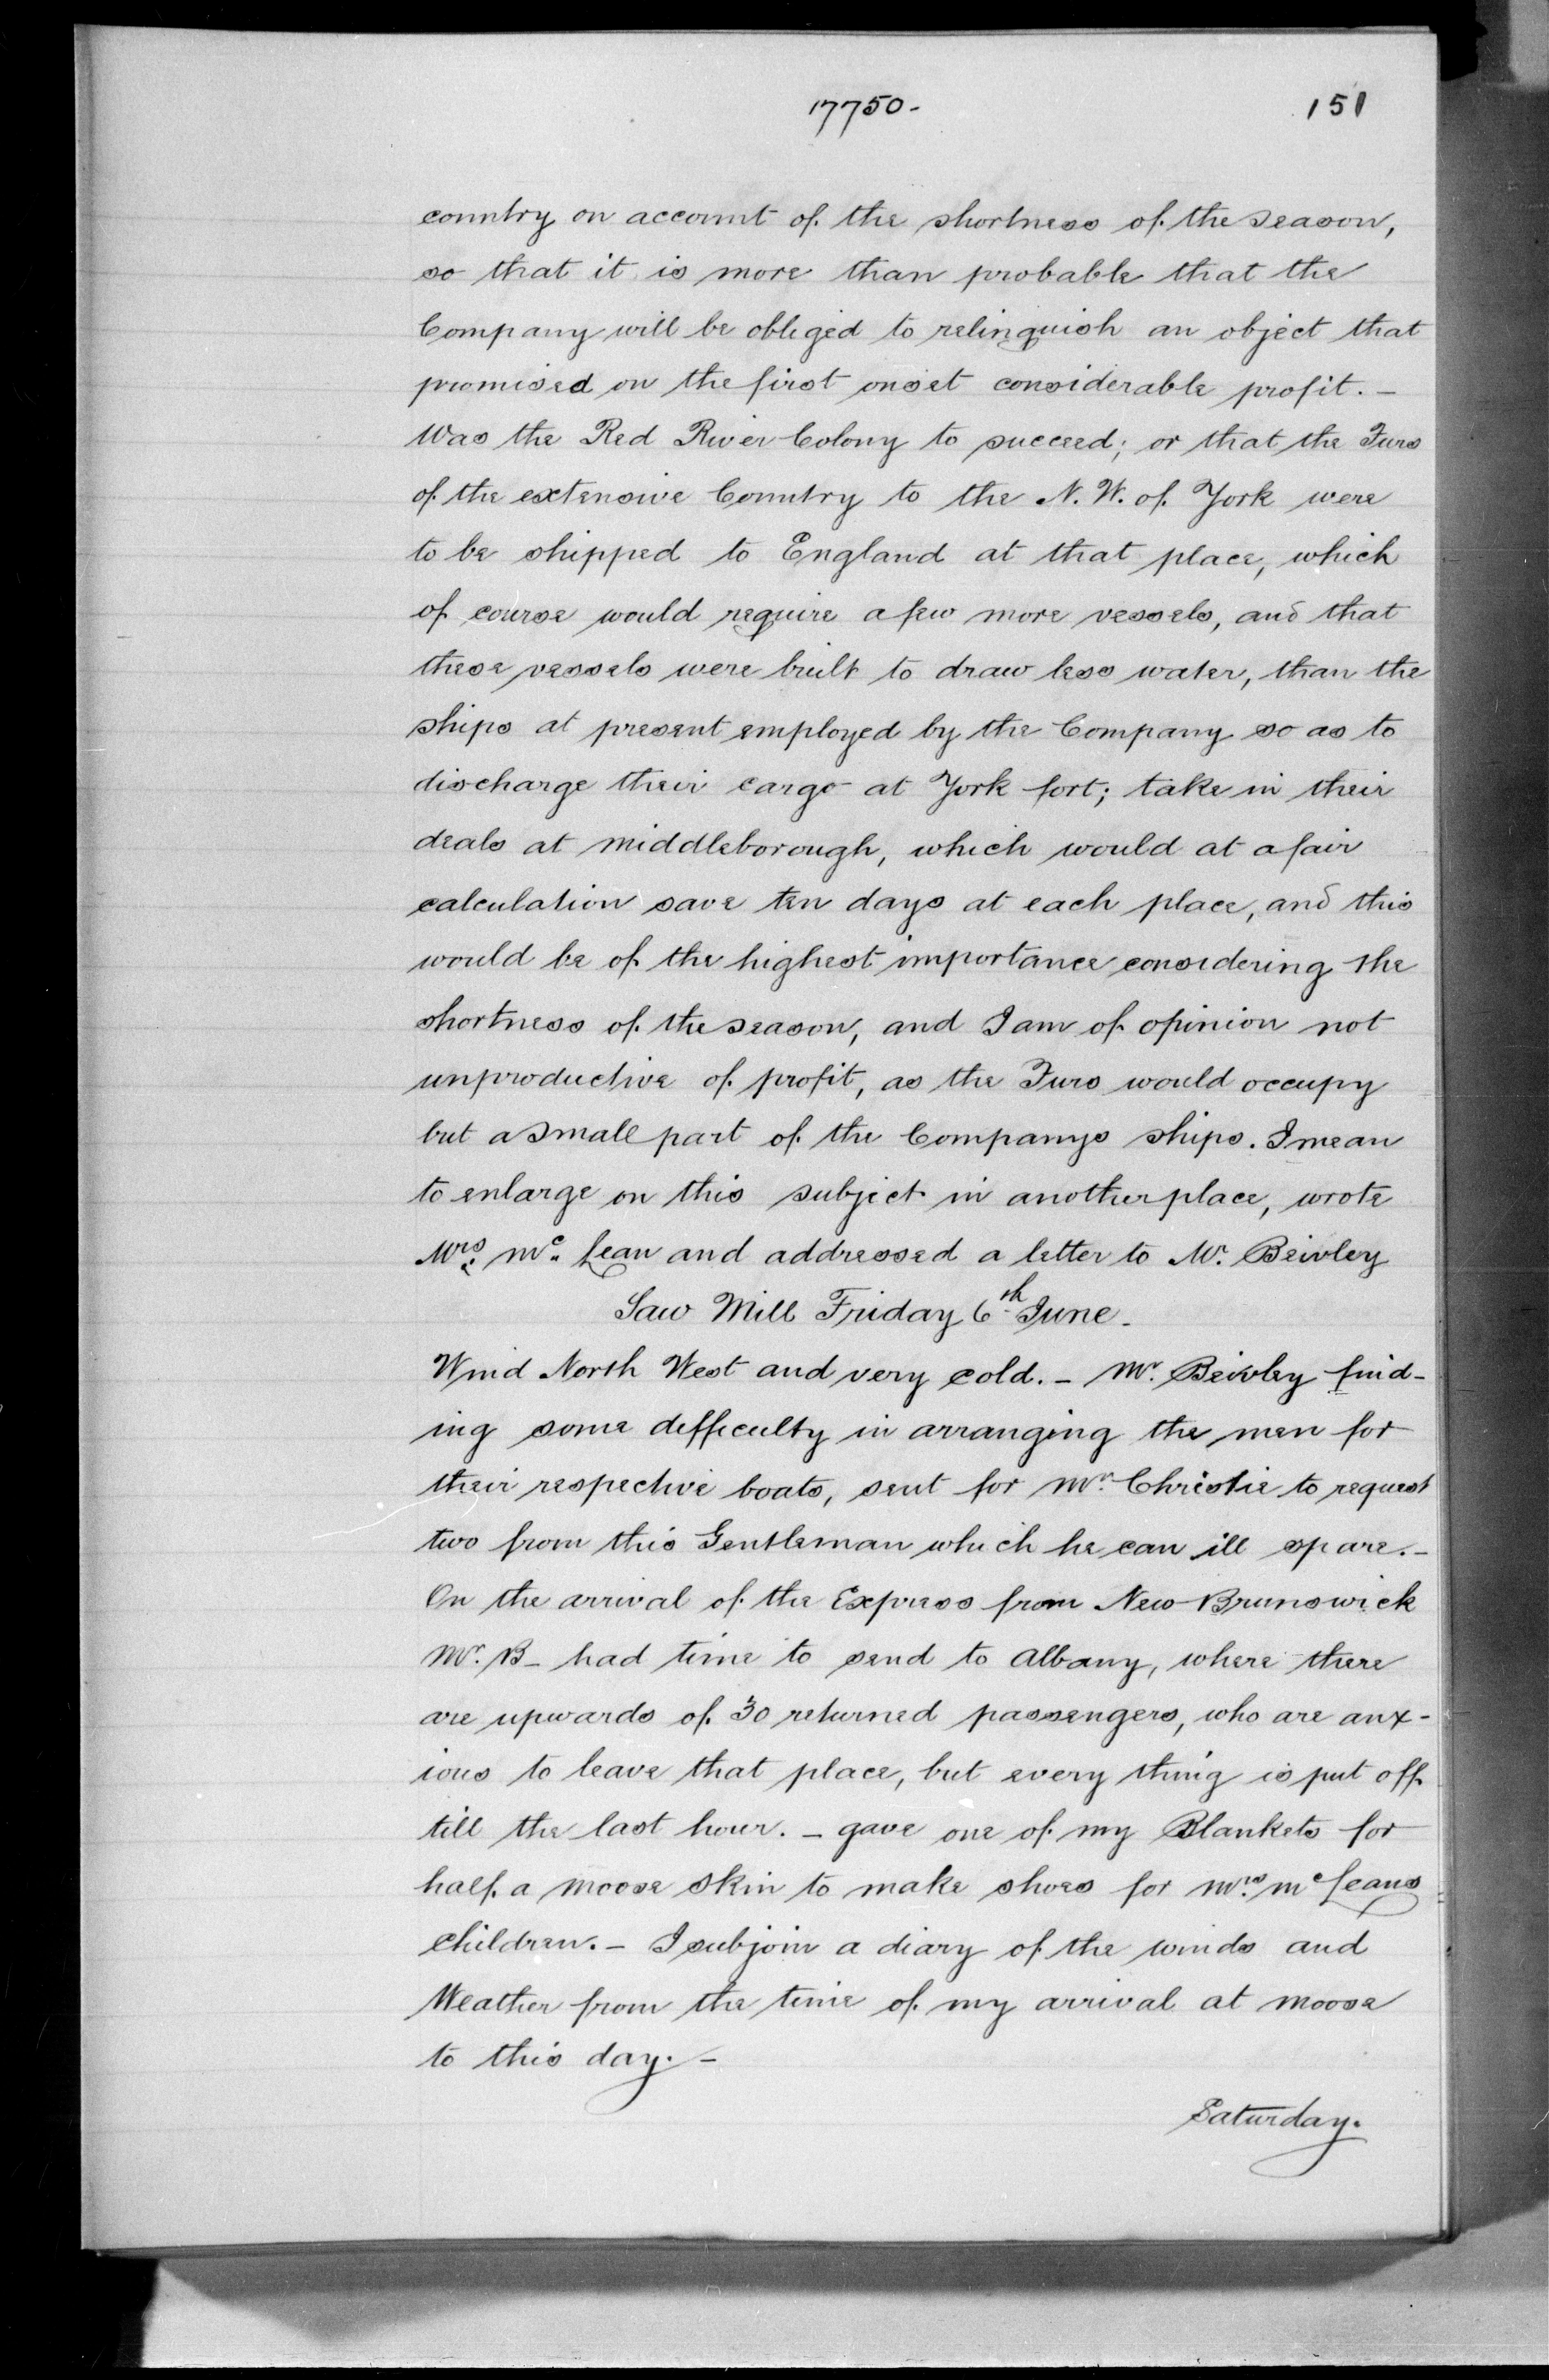 17750- 151
country on account of the shortness of the season,
so that it is more than probable that the
Company will be obliged to relinquish an object that
promised on the first onset considerable profit. -
Was the Red River Colony to succeed; or that the Furs
of the extensive Country to the N. W. of York were
to be shipped to England at that place, which
of course would require a few more vessels, and that
these vessels were built to draw less water, than the
ships at present employed by the Company so as to
discharge their cargo at York fort; take in their
deals at middleborough, which would at a fair
calculation save ten days at each place, and this
would be of the highest importance considering the
shortness of the season, and I am of opinion not
unproductive of profit, as the Furs would occupy
but a small part of the Companys ships. I mean
to enlarge on this subject in another place, wrote
Mrs. Mc. Lean and addressed a letter to Mr. Beivley
Saw Mill Friday 6th June.
Wind North West and very cold. - Mr. Beivley find-
ing some defficulty in arranging the men for
their respective boats, sent for Mr. Christie to request
two from this Gentleman which he can ill spare. -
On the arrival of the Express from New Brunswick
Mr. B- had time to send to Albany, where there
are upwards of 30 returned passengers, who are anx-
ious to leave that place, but every thing is put off
till the last hour. - gave one of my Blankets for
half a moose skin to make shoes for Mrs. Mc Leans
children. - I subjoin a diary of the winds and
Weather from the time of my arrival at moose
to this day. -
Saturday.